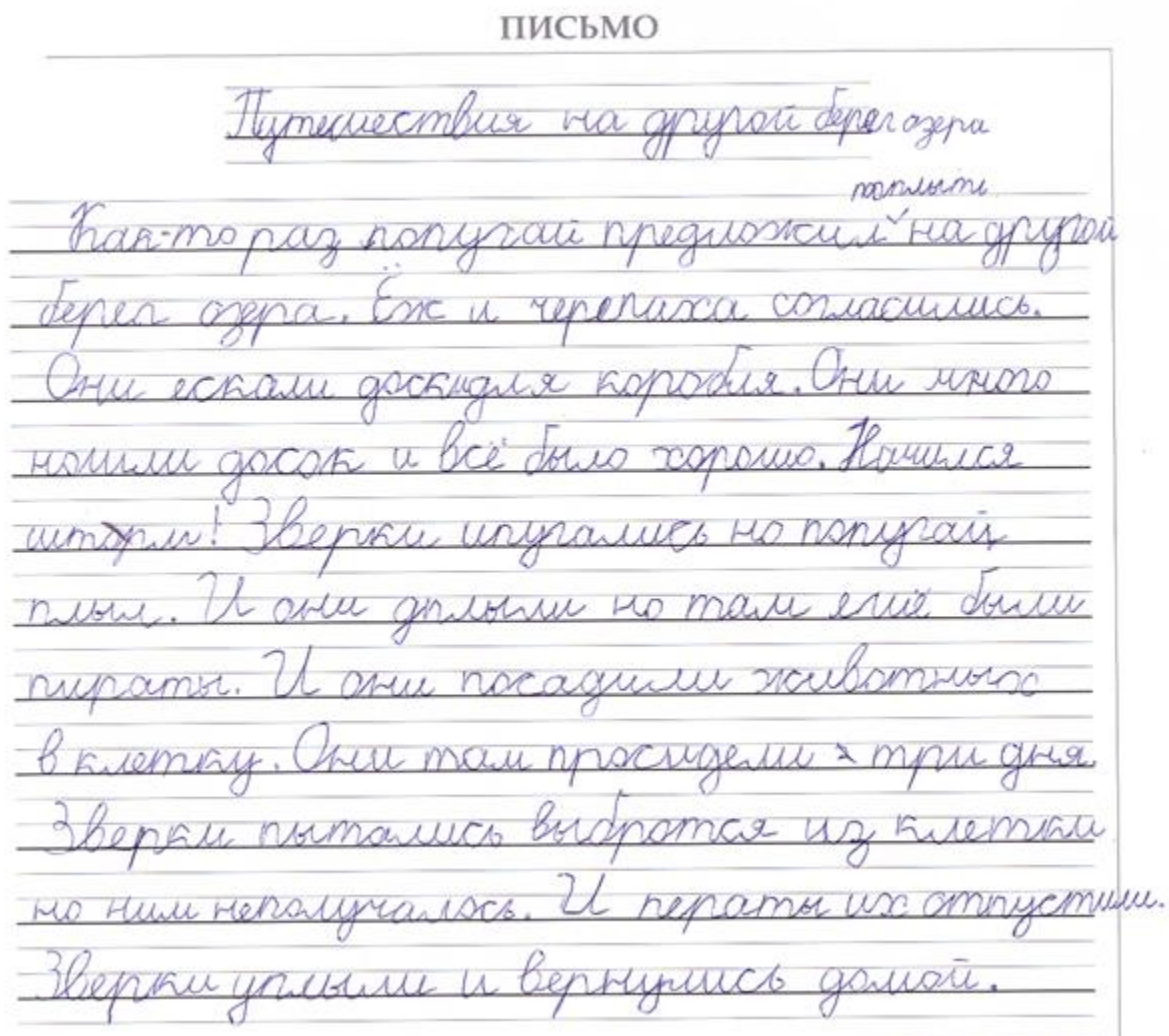 ПИСЬМО
Путешествия на другой берег озера
поплыть
Как-то раз попугай предложил на другой
берег озера. Ёж и черепаха согласились.
Они ескали доскидля коробля. Они много
ношли досок и всё было хорошо. Начился
шторм! Зверки ипугались но попугай
плыл. И они дплыли но там ещё были
пираты. И они посадили животных
в клетку. Они там просидели три дня.
Зверки пытались выбротся из клетки
но ним неполучалось. И ператы их отпустили.
Зверки уплыли и вернулись домой.